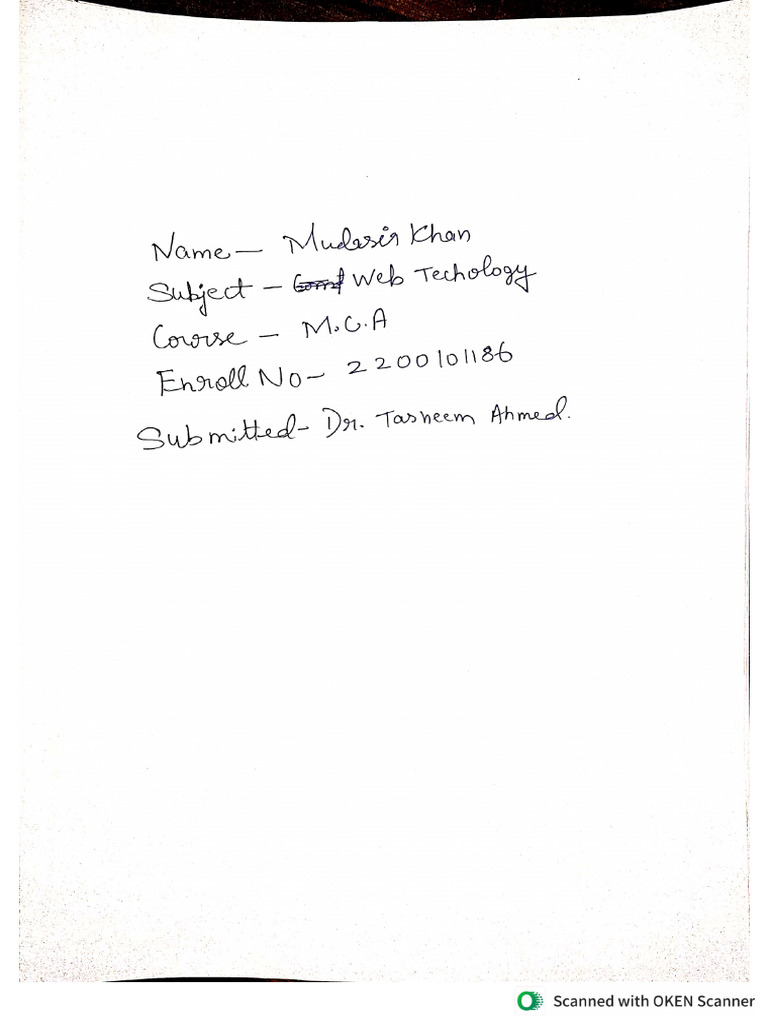 Name — Mudasir Khan
Subject — Web Techology
Course — M.C.A
Enroll No - 2200101186
Submitted - Dr. Tasneem Ahmed.
Scanned with OKEN Scanner